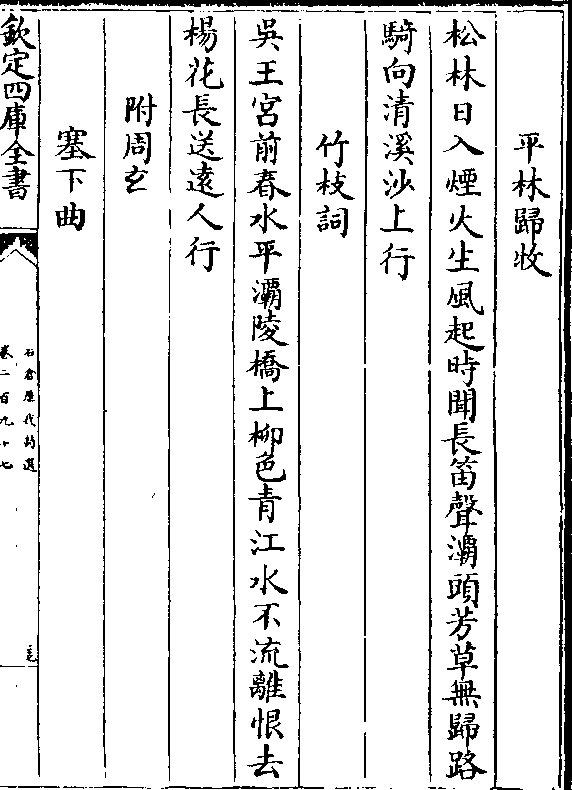 平林歸牧
松林日入煙火生風起時聞長笛聲灞頭芳草無歸路
騎向清溪沙上行
竹枝詞
吳王宮前春水平灞陵橋上柳色青江水不流離恨去
楊花長送遠人行
附周玄
塞下曲
欽定四庫全書
石倉歷代詩選
卷二百九十七